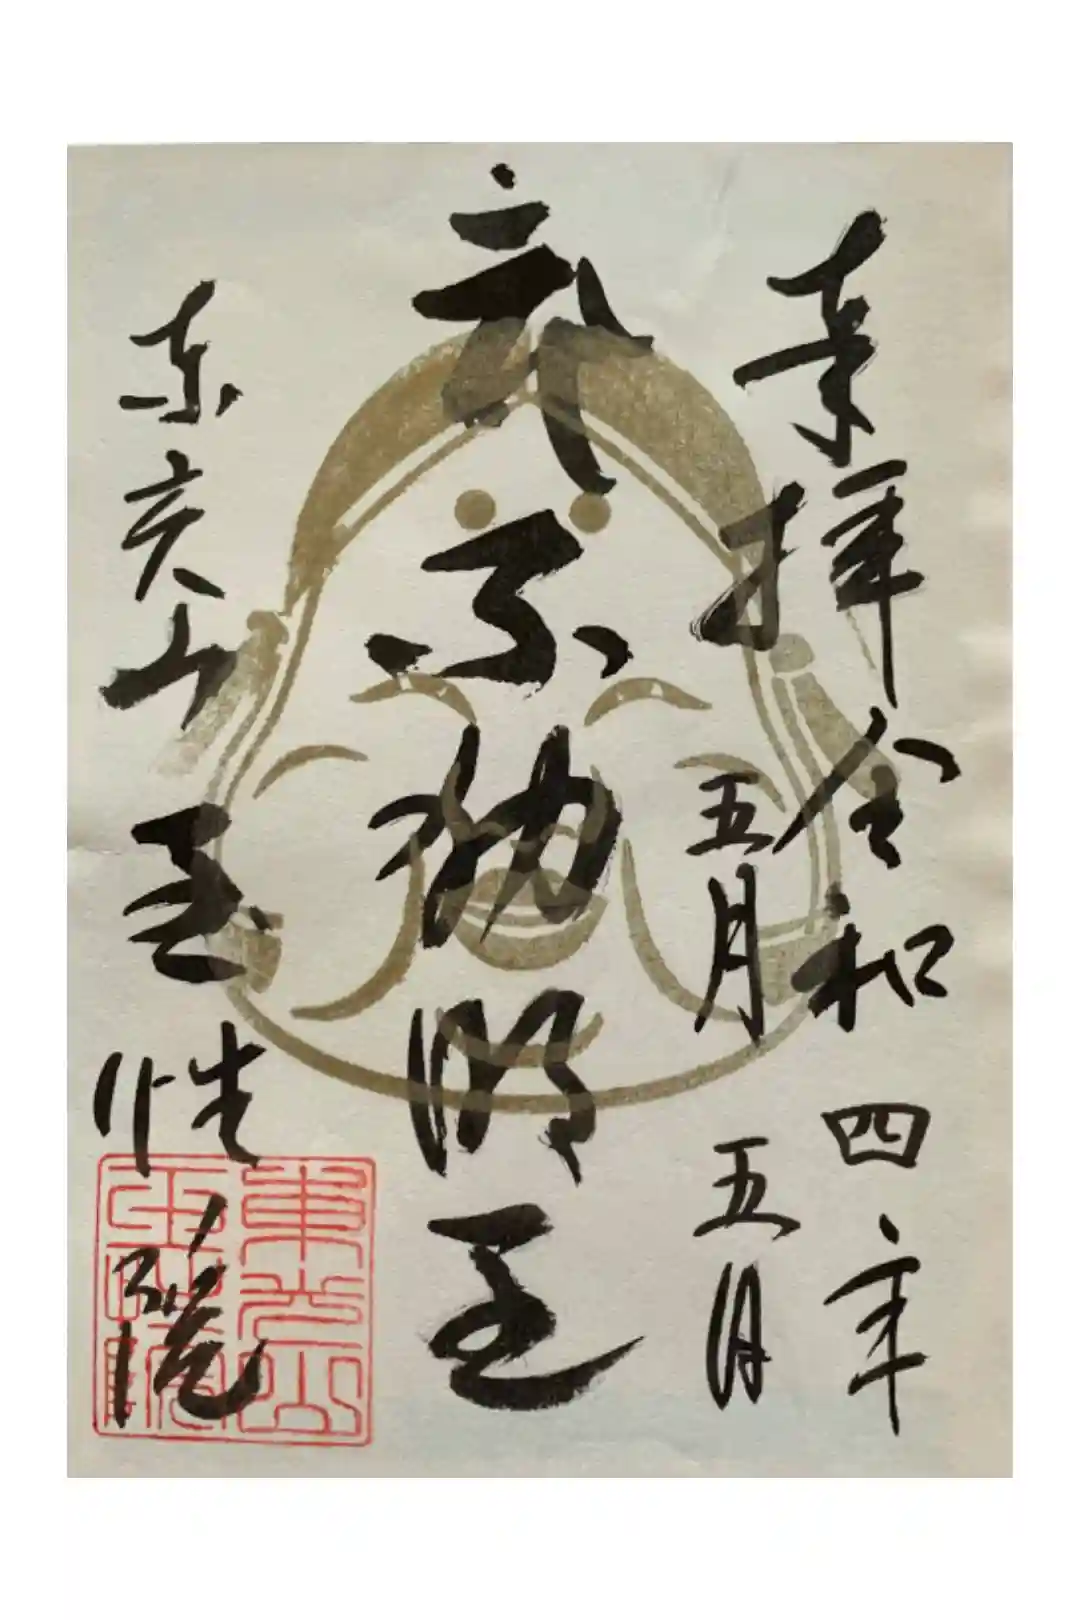 奉拝 令和四年
五月五日
不動明王
東光山 玉性院
東光山
玉性院